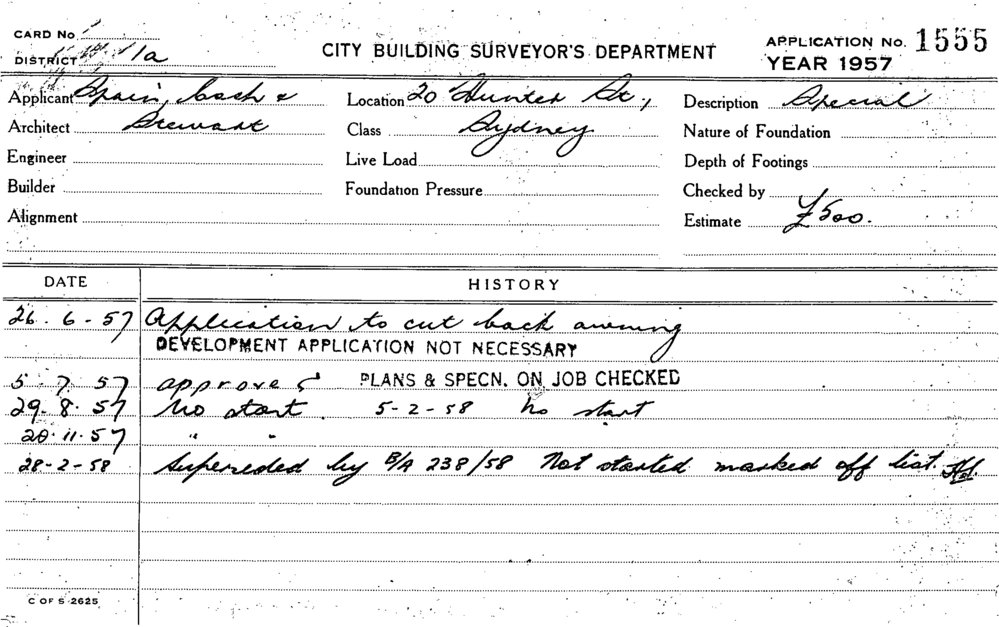 CARD No
DISTRICT 1a
CITY BUILDING SURVEYOR'S DEPARTMENT
APPLICATION No. 1555
YEAR 1957
Applicant Spain, Cosh &
Architect Stewart
Engineer
Builder
Alignment
Location 20 Hunter St.,
Class Sydney
Live Load
Foundation Pressure
Description Special
Nature of Foundation
Depth of Footings
Checked by
Estimate £500.
DATE HISTORY
26. 6 - 57 Application to cut back awning
DEVELOPMENT APPLICATION NOT NECESSARY
5 . 7 . 57 approved PLANS & SPECN. ON JOB CHECKED
29. 8. 57 No start. 5-2-58 No start
20.11.57 " "
28-2-58 Superseded by B/A 238/58 Not started marked off list.
C OF S 2625